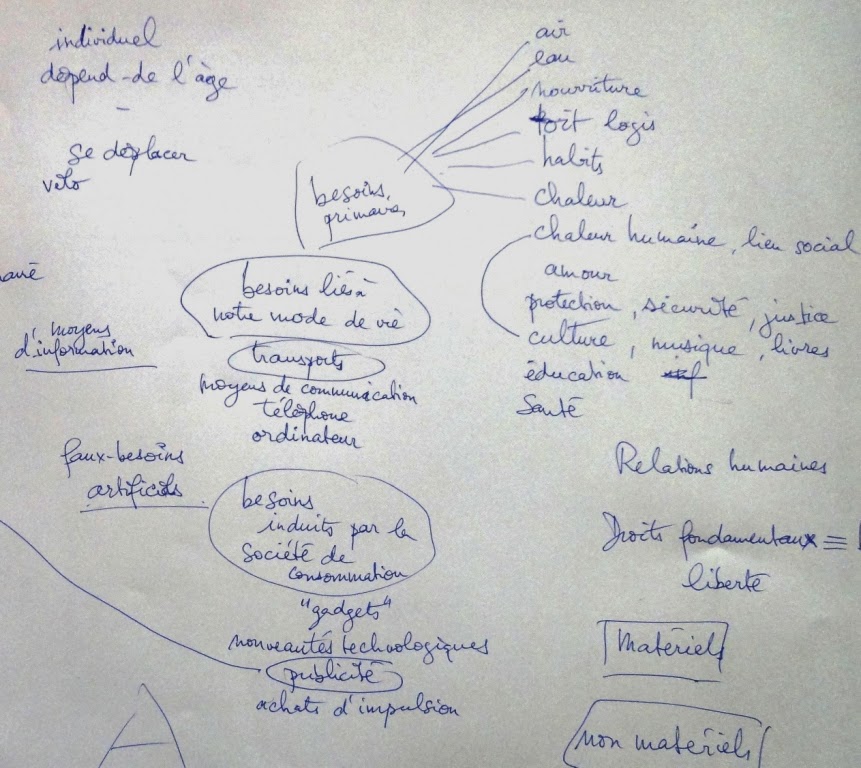 individuel
dépend de l'âge
se déplacer
vélo
besoins
primaires
air
eau
nourriture
toit logis
habits
chaleur
chaleur humaine, lien social
amour
protection, sécurité, justice
culture, musique, livres
éducation
Santé
besoins liés à
notre mode de vie
transports
moyens de communication
téléphone
ordinateur
moyens
d'information
faux-besoins
artificiels
besoins
induits par la
société de
consommation
"gadgets"
nouveautés technologiques
publicité
achats d'impulsion
Relations humaines
Droits fondamentaux =
liberté
Matériels
non matériels
A